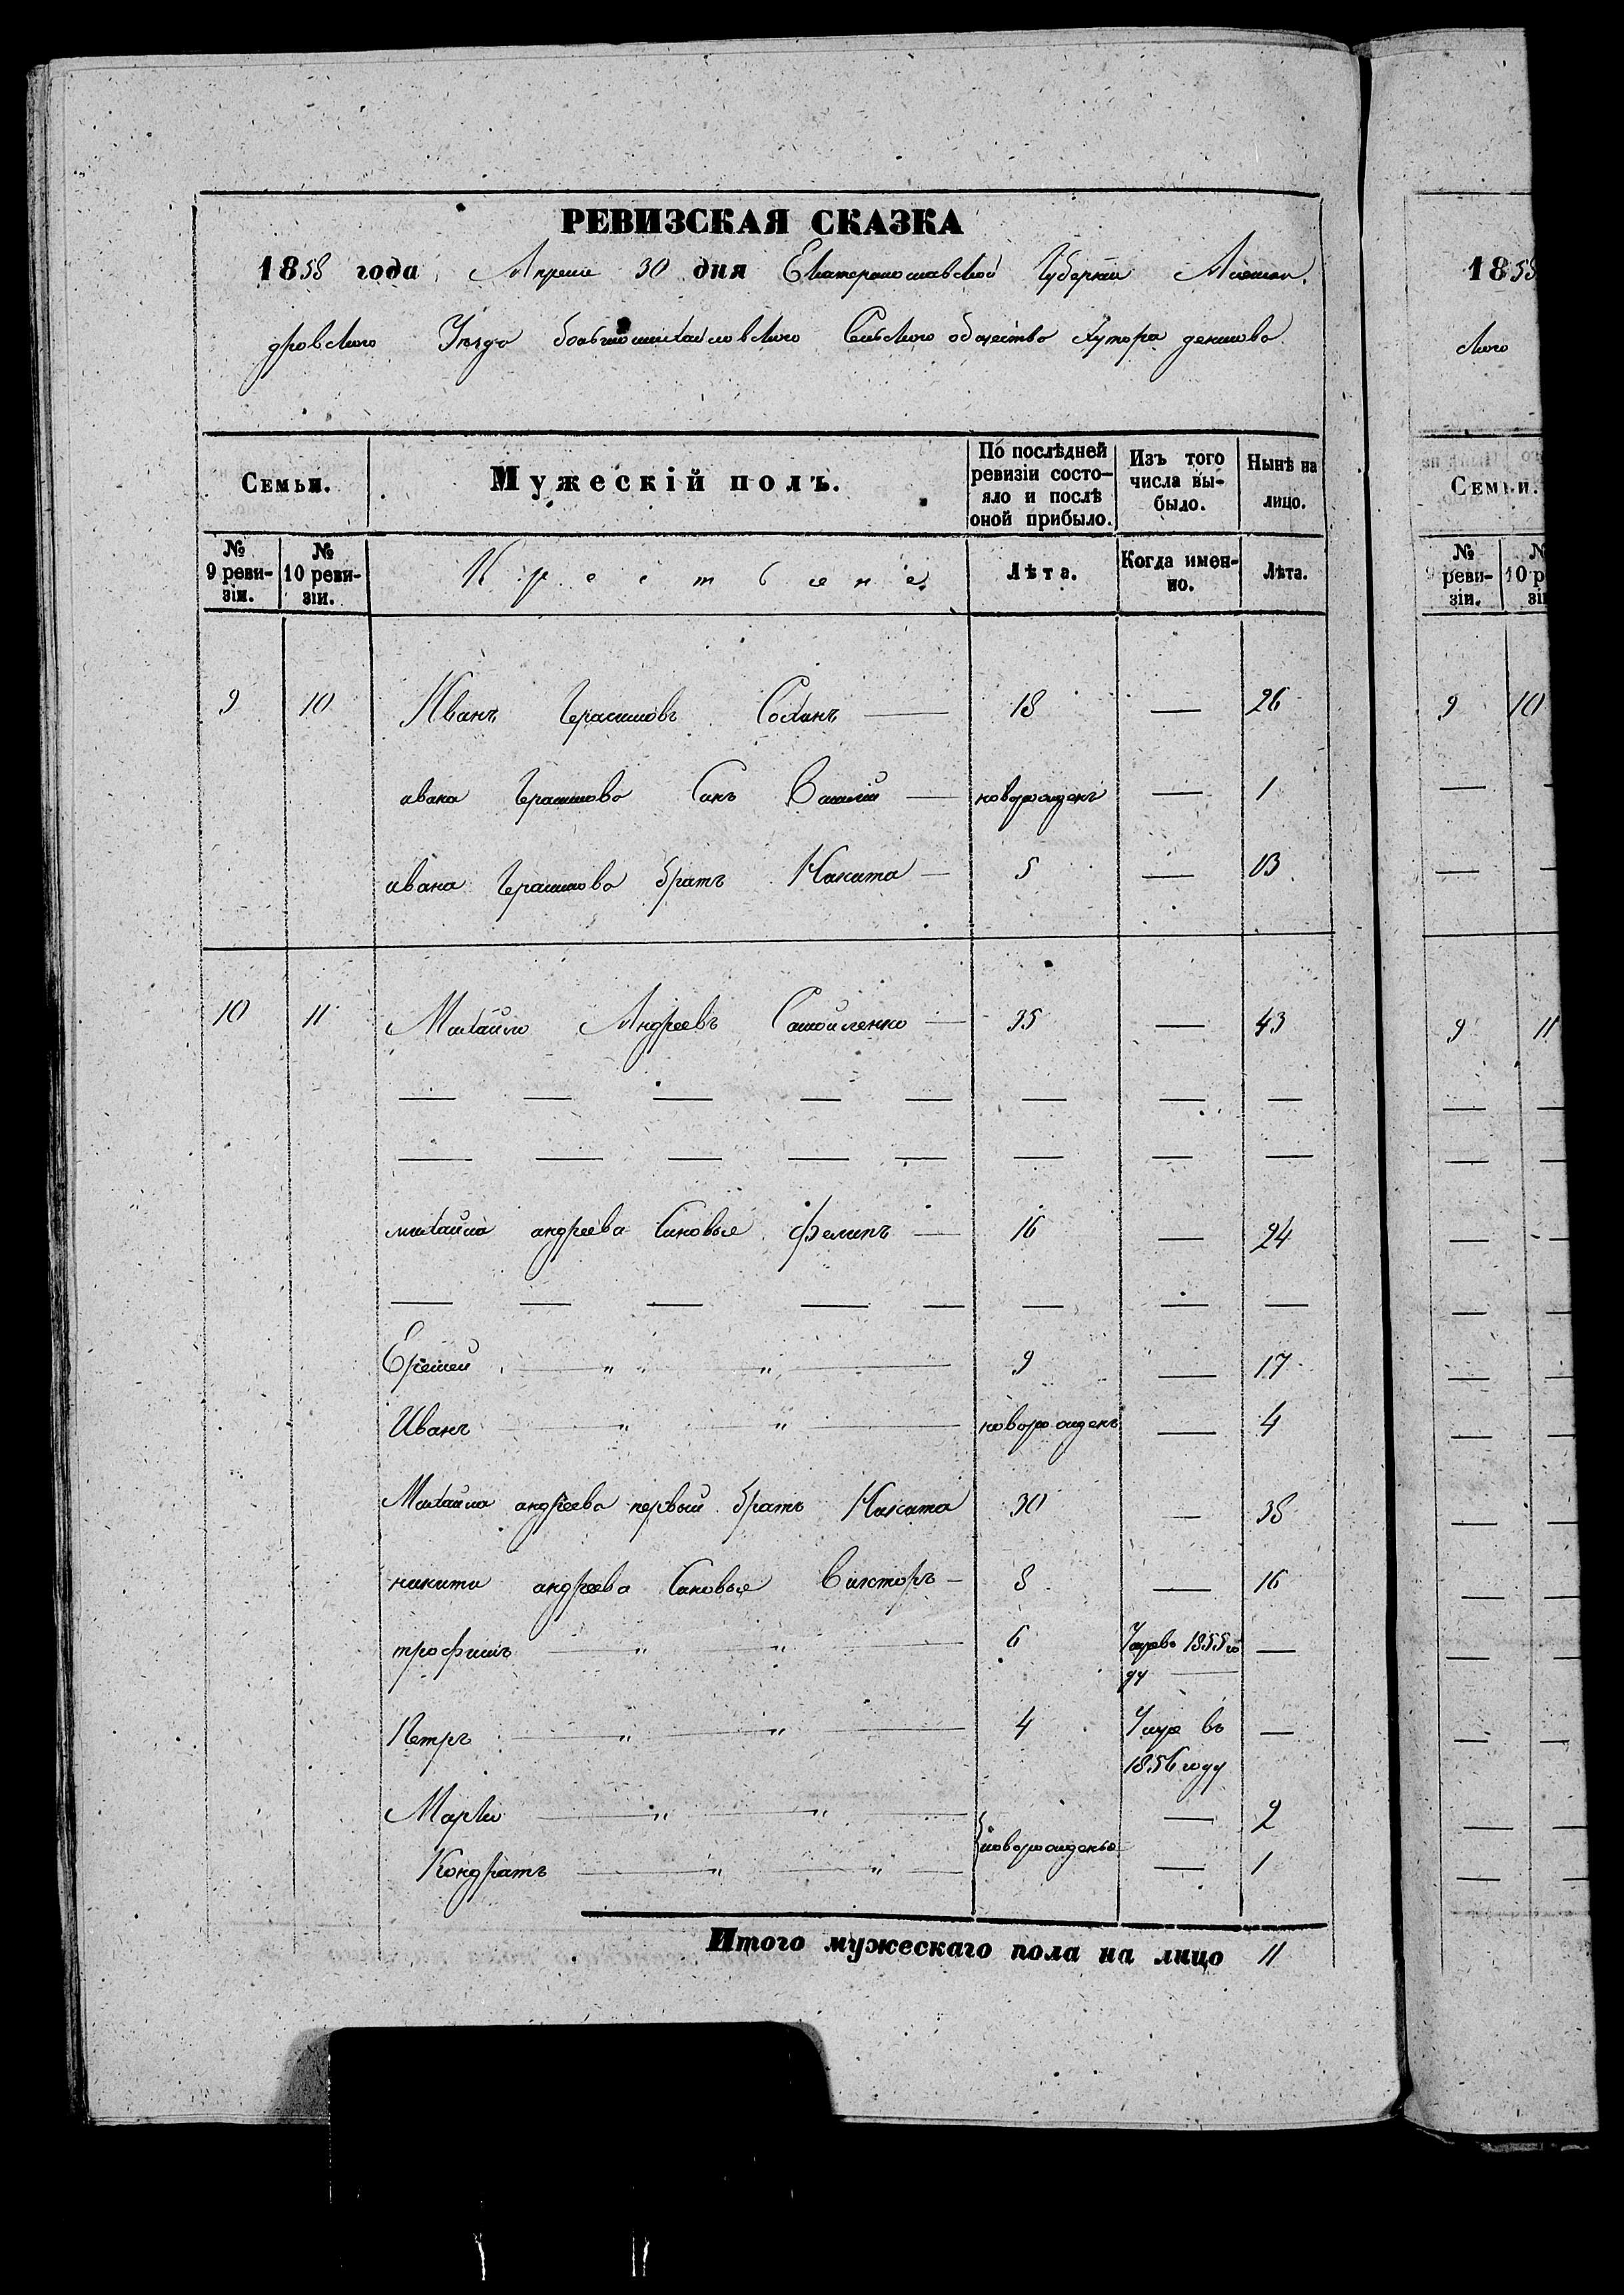 РЕВИЗСКАЯ СКАЗКА
1858 года Апреля 30 дня Екатеринославской Губернии Алексан.
дровского Уезда большемихайловского Сельского общества хутора
Семьи.
Мужескій полъ.
По послѣдней ревизіи состо-
яло и послѣ
оной прибыло.
Изъ того
числа вы-
было.
Нынѣ на
лицо.
№
9 реви-
зіи.
№
10 реви-
зіи.
Лѣта.
Когда имен-
но.
Лѣта.
9 10 Иванъ Герасимовъ — 18 — 26
ивана Герасимова Синъ Василий — новорожденъ — 1
ивана Герасимова братъ Никита — 5 — 13
10 11 Михайло Андреевъ Самойленко — 35 — 43
михайла андреева Синовье филипъ — 16 — 24
Еремей — „ „ „ — 9 — 17
Иванъ — „ — „ — новорожденъ — 4
Михайла андреева первый братъ Никита 30 — 38
никити андреева Синовье Викторъ — 8 — 16
трофимъ — „ — „ — 6 1855 го —
ду —
Петръ — „ — „ — 4 Умре въ —
1856 году
Марко — „ — „ — — 2
новорожденые
Кондратъ — „ — „ — — 1
Итого мужескаго пола на лицо 11
1858
ского
Семьи.
№
9 реви-
зіи.
9 10
9 11